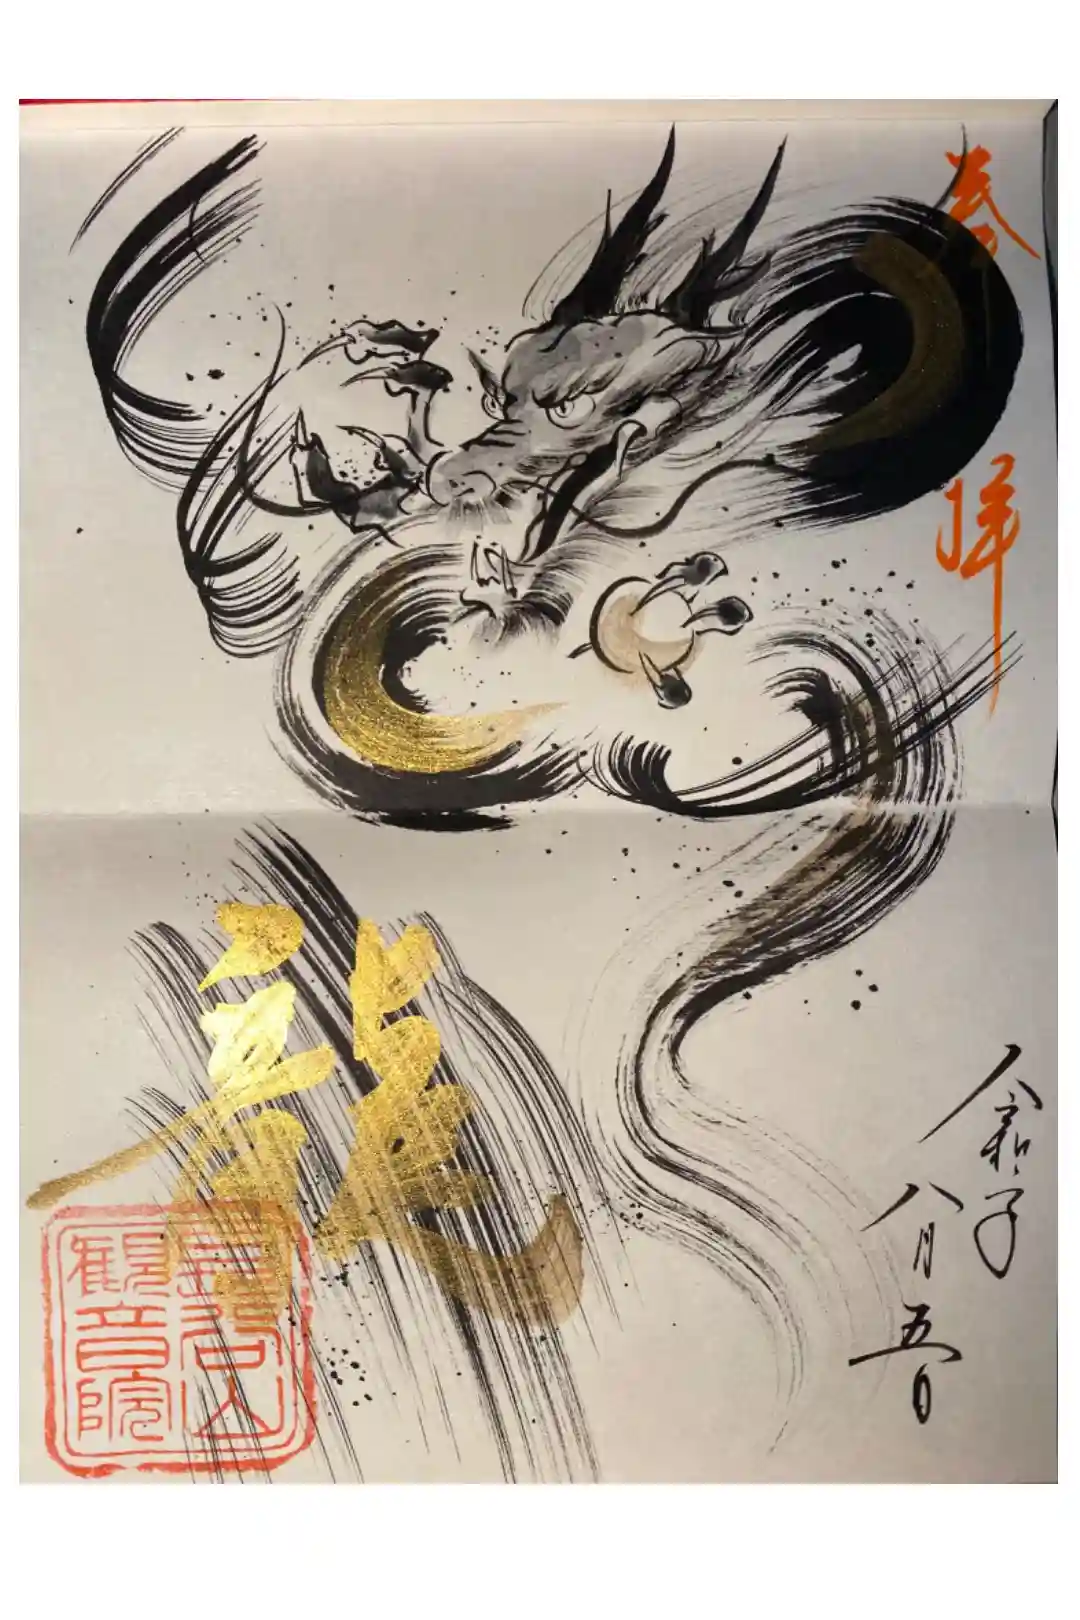 奉拝
令和 年
八月五日
龍
山
観音院